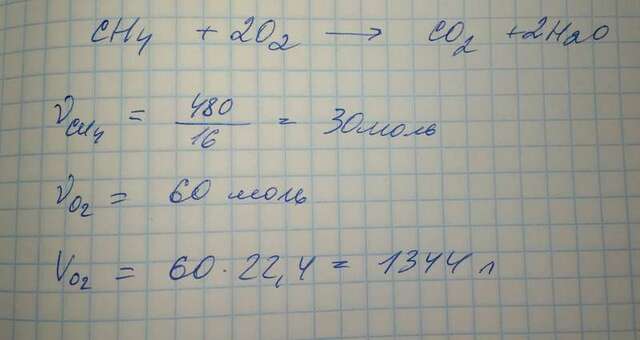 CH4 + 2O2 → CO2 + 2H2O
νCH4 = 480/16 = 30 моль
νO2 = 60 моль
VO2 = 60 · 22,4 = 1344 л